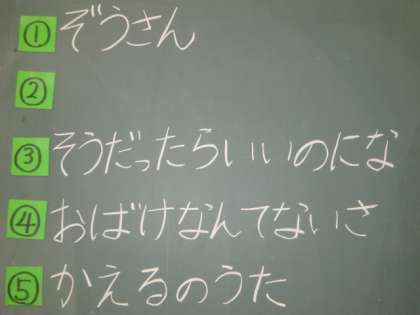 ① ぞうさん
②
③ そうだったらいいのにな
④ おばけなんてないさ
⑤ かえるのうた